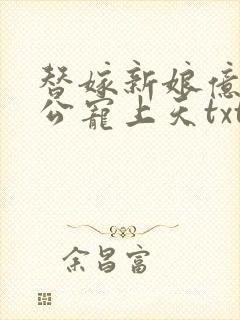 替嫁新娘亿
公宠上天txt
余昌富